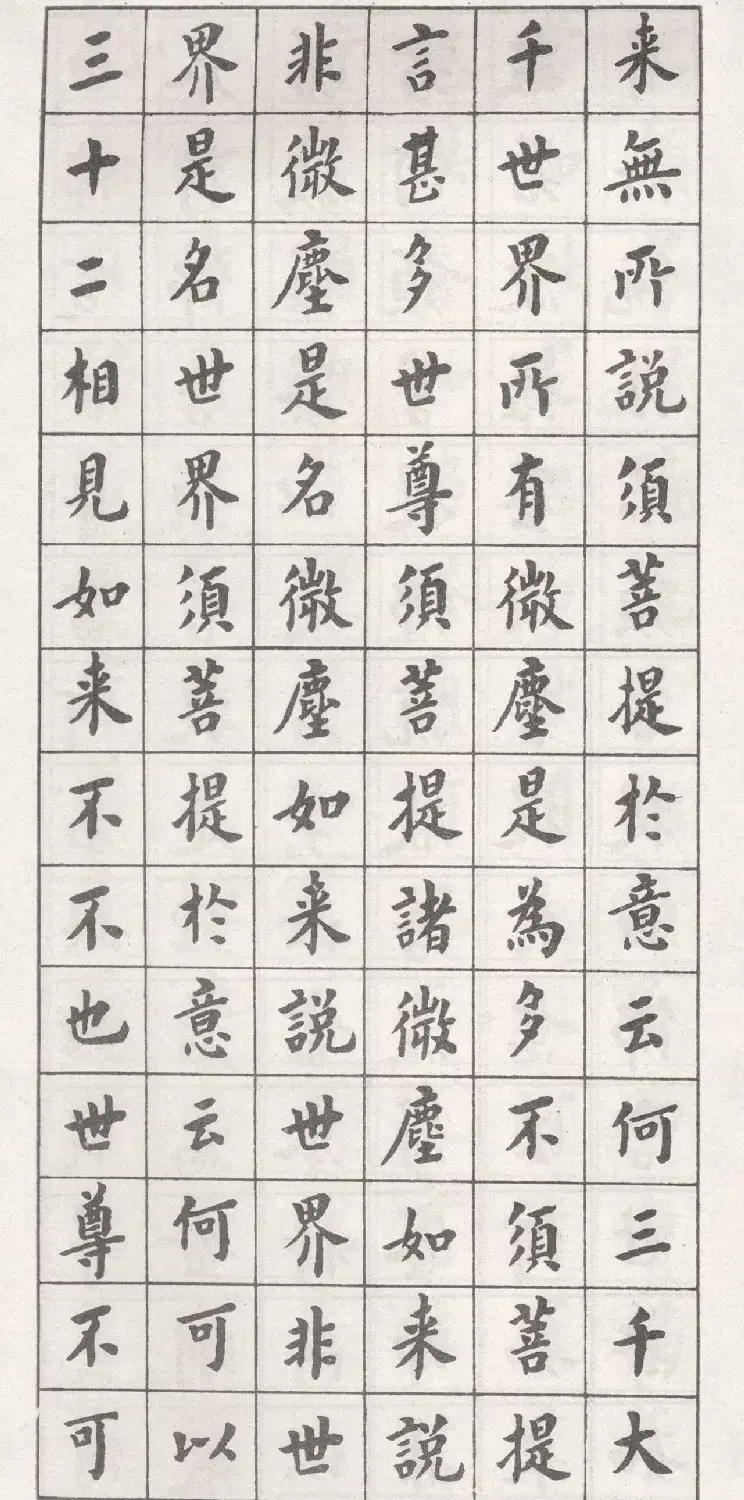 来無所說須菩提於意云何三千大
千世界所有微塵是為多不須菩提
言甚多世尊須菩提諸微塵如来說
非微塵是名微塵如来說世界非世
界是名世界須菩提於意云何可以
三十二相見如来不不也世尊不可